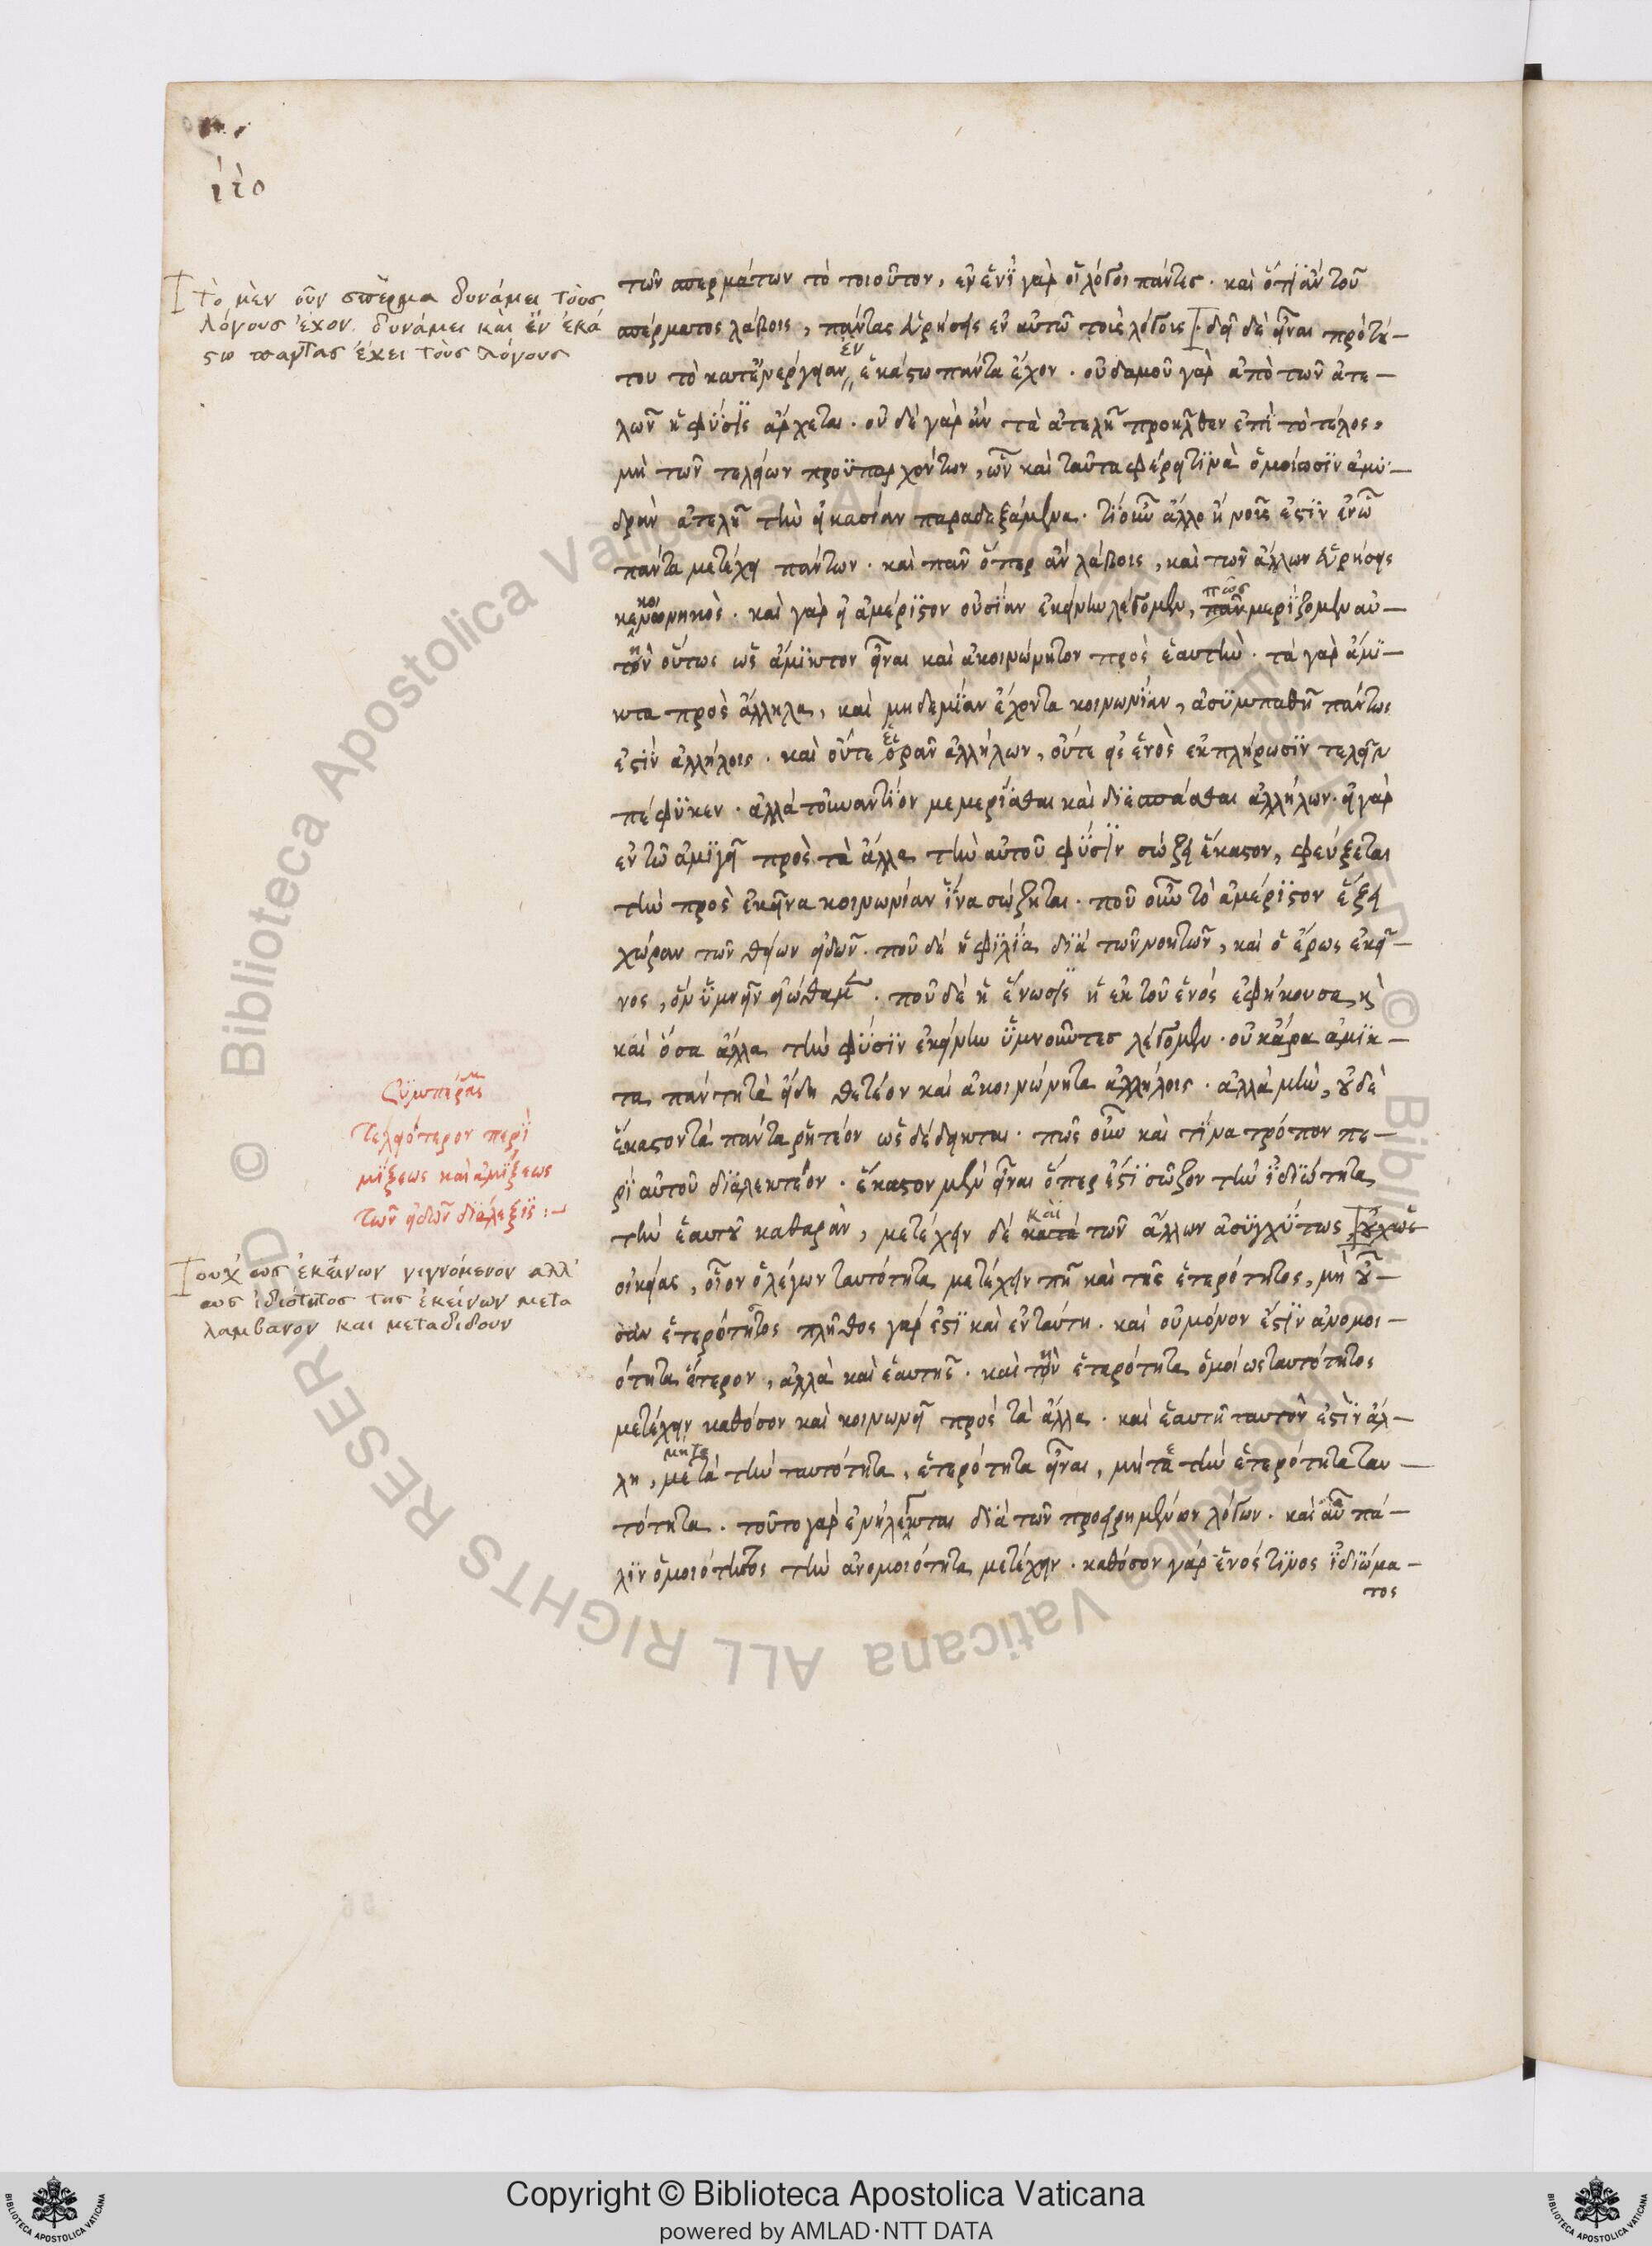 ιτο
τῶν σπερμάτων τὸ τοιοῦτον, ἐν ἑνὶ γὰρ οἱ λόγοι πάντες· καὶ ὅτι ἂν τοῦ
σπέρματος λάβοις, πάντας εὑρήσεις ἐν αὐτῶ τοὺς λόγους· δεῖ δὲ εἶναι πρὸ τού-
του τὸ κατ' ἐνέργειαν ἐν ἑκάστω πάντα ἔχον· οὐδαμοῦ γὰρ ἀπὸ τῶν ἀτε-
λῶν ἡ φύσις ἄρχεται· οὐδὲ γὰρ ἂν τὰ ἀτελῆ προῆλθεν ἐπὶ τὸ τέλος,
μὴ τῶν τελείων προϋπαρχόντων, ὧν καὶ ταῦτα φέρει τινὰ ὁμοίωσιν ἀμυ-
δρὰν ἀτελῆ τὴν εἰκασίαν παραδεξάμενα· τί οὖν ἄλλο ἢ νοῦς ἐστὶν ἐν ὧ
πάντα μετέχει πάντων· καὶ πᾶν ὅπερ ἂν λάβοις, καὶ τῶν ἄλλων εὑρήσεις
κεκοινωνηκὸς· καὶ γὰρ εἰ ἀμέριστον οὐσίαν ἐκείνην λέγομεν, πῶς μερίζομεν αὐ-
τὴν οὕτως ὡς ἄμικτον εἶναι καὶ ἀκοινώνητον πρὸς ἑαυτὴν· τὰ γὰρ ἄμι-
κτα πρὸς ἄλληλα, καὶ μηδεμίαν ἔχοντα κοινωνίαν, ἀσυμπαθῆ πάντως
ἐστὶν ἀλλήλοις· καὶ οὔτε ἐρᾶν ἀλλήλων, οὔτε εἰς ἑνὸς ἐκπλήρωσιν τελεῖν
πέφυκεν· ἀλλὰ τοὐναντίον μεμερίσθαι καὶ διεσπάσθαι ἀλλήλων· εἰ γὰρ
ἐν τῶ ἀμιγεῖ πρὸς τὰ ἄλλα τὴν αὐτοῦ φύσιν σώζει ἕκαστον, φεύξεται
τὴν πρὸς ἐκεῖνα κοινωνίαν ἵνα σώζηται· ποῦ οὖν τὸ ἀμέριστον ἕξει
χώραν τῶν θείων εἰδῶν· ποῦ δὲ ἡ φιλία διὰ τῶν νοητῶν, καὶ ὁ ἔρως ἐκεῖ-
νος, ὃν ὑμνεῖν εἰώθαμεν· ποῦ δὲ ἡ ἕνωσις ἡ ἐκ τοῦ ἑνὸς ἐφήκουσα, καὶ
καὶ ὅσα ἄλλα τὴν φύσιν ἐκείνην ὑμνοῦντες λέγομεν· οὐκ ἄρα ἄμικ-
τα πάντη τὰ εἴδη θετέον καὶ ἀκοινώνητα ἀλλήλοις· ἀλλὰ μὴν, οὐδὲ
ἕκαστον τὰ πάντα ῥητέον ὡς δέδεικται· πῶς οὖν καὶ τίνα τρόπον πε-
ρὶ αὐτοῦ διαλεκτέον· ἕκαστον μὲν εἶναι ὅπερ ἐστὶ σῶζον τὴν ἰδιότητα
τὴν ἑαυτοῦ καθαρὰν, μετέχειν δὲ καὶ τῶν ἄλλων ἀσυγχύτως, οὐχ ὡς
οἰκείας, οἷον ὁ λέγων ταυτότητα μετέχειν πῆ καὶ τῆς ἑτερότητος, μὴ οὖ-
σαν ἑτερότητος πλῆθος γάρ ἐστι καὶ ἐνταύτη· καὶ οὐ μόνον ἐστὶν ἀνομοι-
ότητα ἕτερον, ἀλλὰ καὶ ἑαυτῆς· καὶ τὴν ἑτερότητα ὁμοίως ταυτότητος
μετέχειν καθόσον καὶ κοινωνεῖ πρὸς τὰ ἄλλα· καὶ ἑαυτῆ ταυτὸν ἐστὶν ἀλ-
λη, μήτε τὴν ταυτότητα, ἑτερότητα εἶναι, μήτε τὴν ἑτερότητα ταυ-
τότητα· τοῦτο γὰρ ἐνήλεκται διὰ τῶν προειρημένων λόγων· καὶ αὖ πά-
λιν ὁμοιότητος τὴν ἀνομοιότητα μετέχειν· καθόσον γὰρ ἑνός τινος ἰδιώμα-
τος
Τὸ μὲν οὖν σπέρμα δυνάμει τοὺς
λόγους ἔχον, δυνάμει καὶ ἐν ἑκά
στω παντας ἔχει τοὺς λόγους
Συμπέρασμα
τελειότερον περὶ
μίξεως καὶ ἀμιξίεως
τῶν εἰδῶν διάλεξις:-
ουχ ως ἐκείνων γιγνόμενον αλλ'
ως ἰδιότητος της ἐκείνων μετα
λαμβανον και μεταδιδουν
© Biblioteca Apostolica Vaticana ALL RIGHTS RESERVED
Copyright © Biblioteca Apostolica Vaticana
powered by AMLAD·NTT DATA
BIBLIOTECA APOSTOLICA VATICANA
BIBLIOTECA APOSTOLICA VATICANA